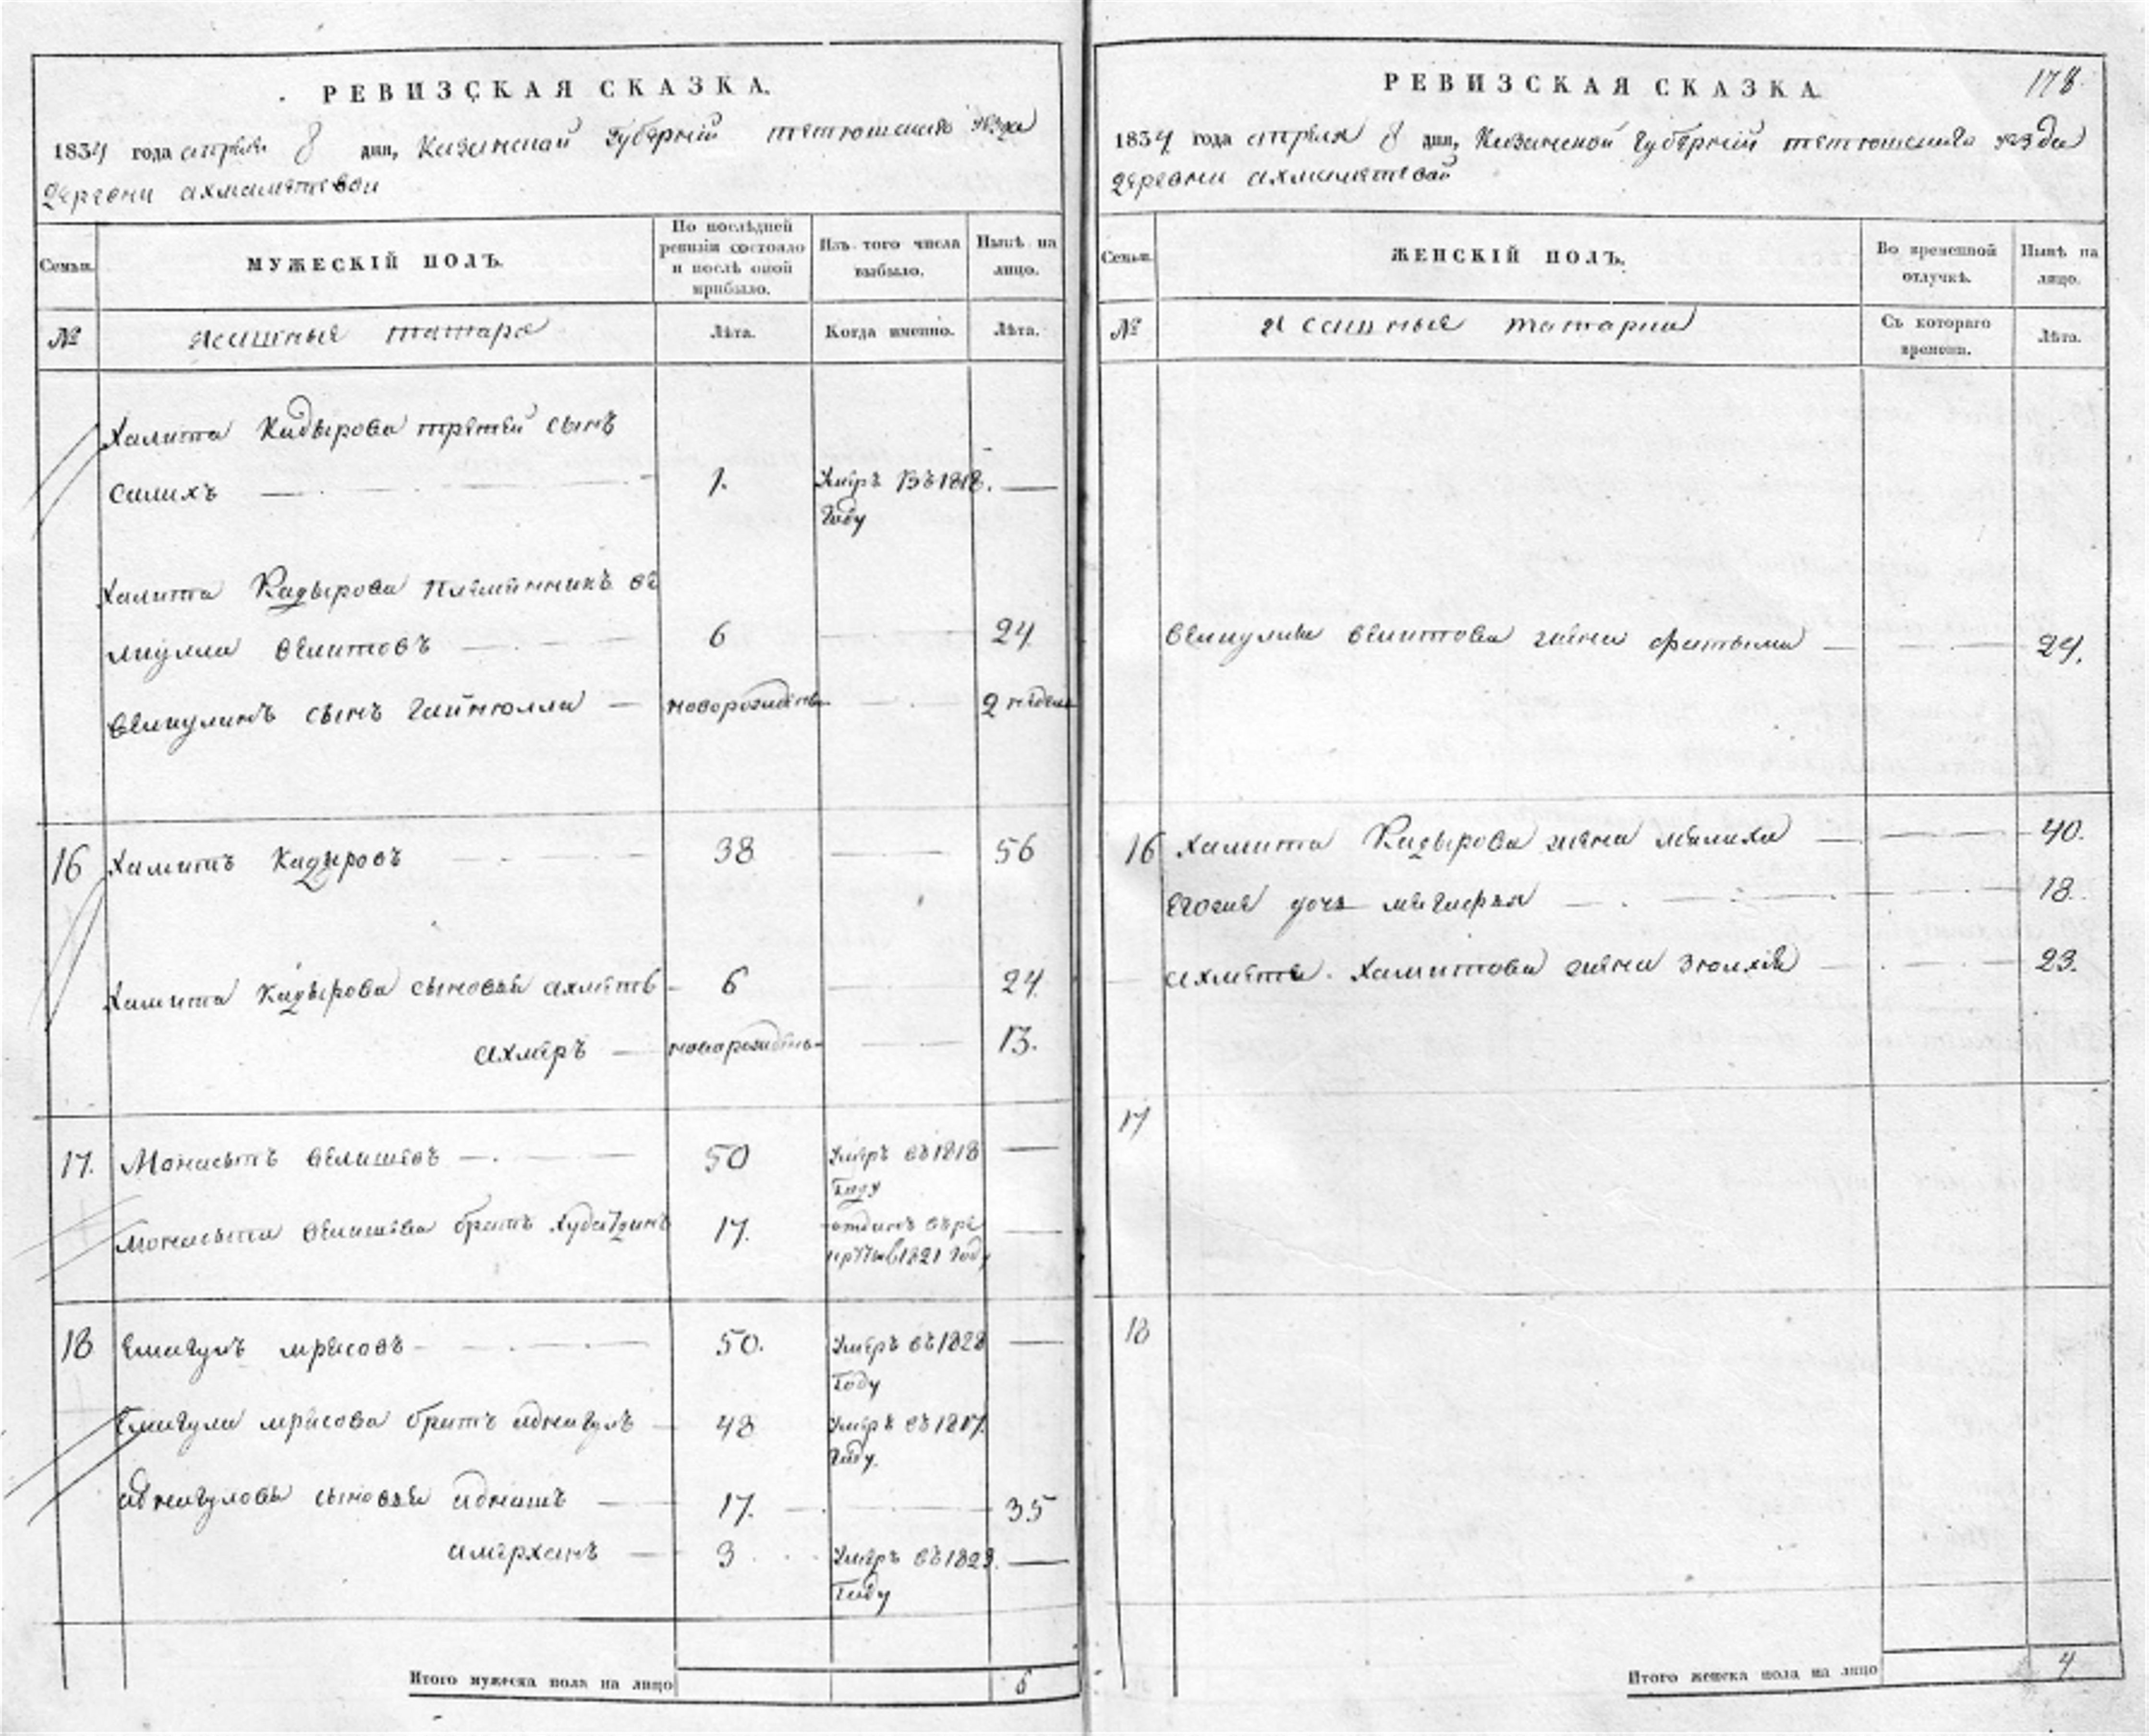 РЕВИЗСКАЯ СКАЗКА.
1834 года апреля 8 дня, Казанской Губернии тетюшскаго уезда
деревни ахмаметевой
Семьи.
МУЖЕСКІЙ ПОЛЪ.
По послѣдней ревизіи состояло и послѣ оной прибыло.
Изъ того числа выбыло.
Нынѣ на лицо.
№
Ясашныя татара
Лѣта.
Когда именно.
Лѣта.
Халита Кадырова третей сынъ
Салихъ 1. Умеръ Въ 1818.
Году
Халита Кадырова племянникъ ве
лиулла велитовъ 6 24
сынъ Гайнюлла новорожден 2 недели
16 Хамитъ Кадыровъ 38 56
Хамита Кадырова сыновья ахметъ 6 24
ахмеръ новорожден 13.
17. Монасыпъ велишевъ 50 Умеръ въ 1818
Году
Монасыпа велишева братъ Худайдинъ 17. отданъ въ ре
круты в 1821 Году
18 Емагулъ мрясовъ 50. Умеръ въ 1828
Году
Емагула мрясова братъ аднагулъ 48 Умеръ въ 1817.
Году.
аднагуловы сыновья аднашъ 17. 35
амерханъ 3 Умеръ въ 1823.
Году
Итого мужеска пола на лицо 6
РЕВИЗСКАЯ СКАЗКА. 178.
1834 года апреля 8 дня, Казанской Губернии тетюшскаго уезда
деревни ахмаметевой
Семьи.
ЖЕНСКІЙ ПОЛЪ.
Во временной отлучкѣ.
Нынѣ на лицо.
№
Ясашныя татарки
Съ котораго времени.
Лѣта.
велитова жена фатыма 24.
16 Хамита Кадырова жена малиха 40.
Егоже дочь 18.
ахметя Хамитова жена 23.
17
18
Итого женска пола на лицо 4